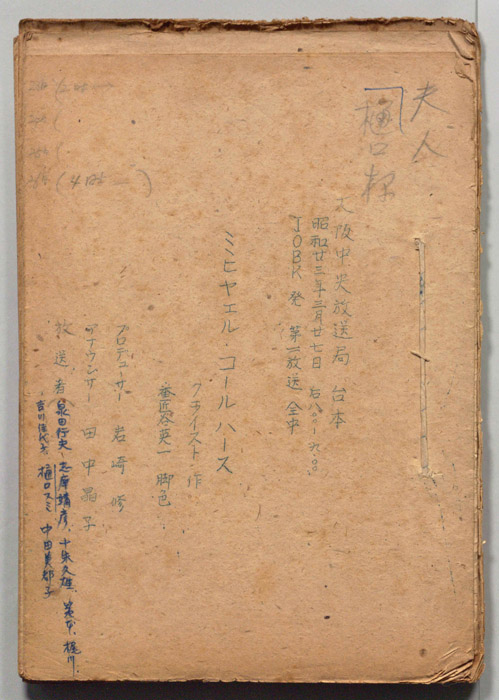 夫人
樋口
大阪中央放送局 台本
昭和廿三年三月廿七日 后八.〇〇―九.〇〇
JOBK発 第一放送 全中
ミヒヤエル・コールハース
クライスト・作
番匠谷英一 脚色
プロデューサー 岩崎修
アナウンサー 田中晶子
放送者 泉田行夫、志摩靖彦、十朱久雄、 梶川、
吉川佳代子 樋口スミ 中田
(4時 )